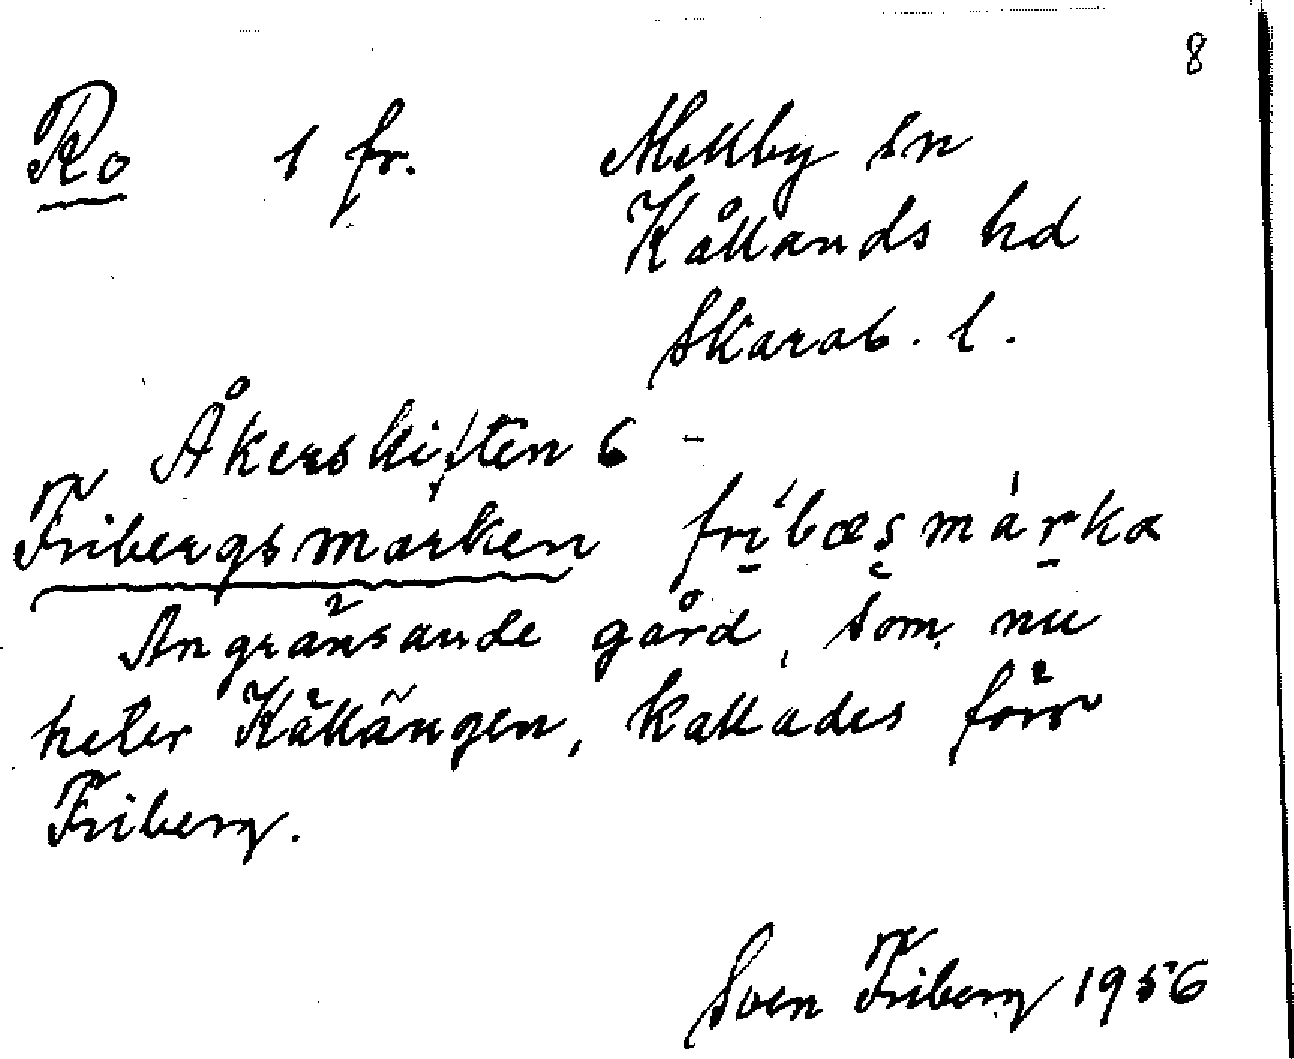 8
Ro 1 fr. Mellby sn
Kållands hd
Skarab. l.
Åkerskiften 6 -
Fribergsmarken fríbæsmàrka
Angränsande gård, som nu
heter Källängen, kallades förr
Friberg.
Sven Friberg 1956